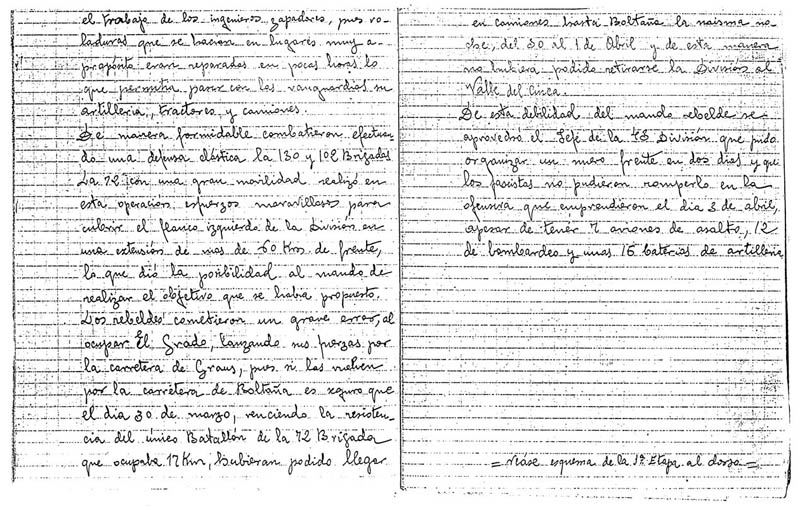 el trabajo de los ingenieros zapadores, pues vo-
laduras que se hacian en lugares muy a-
proposito eran reparadas en pocas horas lo
que permitia pasar con las vanguardias su
artilleria, tractores y camiones.
De manera formidable combatieron efectuan-
do una defensa elástica la 130 y 102 Brigadas
La 72 con una gran movilidad realizó en
esta operacion esfuerzos maravillosos para
cubrir el flanco izquierdo de la División en
una extensión de mas de 60 Kms de frente,
lo que dió la posibilidad al mando de
realizar el objetivo que se habia propuesto.
Los rebeldes cometieron un grave error, al
ocupar El Grado, lanzando sus fuerzas por
la carretera de Graus, pues si las meten
por la carretera de Boltaña es seguro que
el dia 30 de marzo, venciendo la resisten-
cia del único Batallón de la 72 Brigada
que ocupaba 17 Km, hubieran podido llegar
en camiones hasta Boltaña la misma no-
che, del 30 al 1 de Abril y de esta manera
no hubiera podido retirarse la División al
Valle del Cinca.
De esta debilidad del mando rebelde se
aprovechó el Jefe de la 43 División que pudo
organizar un nuevo frente en dos dias y que
los fascistas no pudieron romperlo en la
ofensiva que emprendieron el dia 3 de abril,
apesar de tenér 7 aviones de asalto, 12
de bombardeo y unas 16 baterias de artilleria
= véase esquema de la 1ª Etapa al dorso =